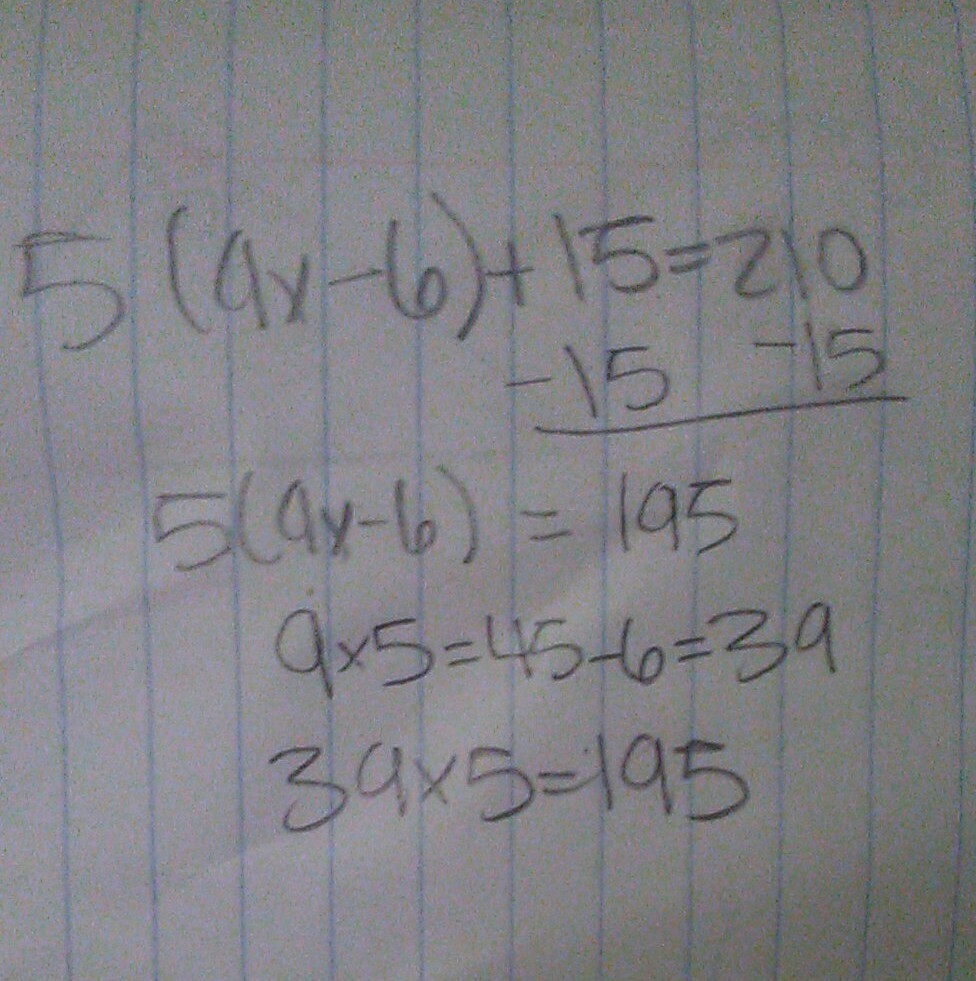 5(9x-6)+15=210
-15 -15
5(9x-6) = 195
9x5=45-6=39
39x5=195